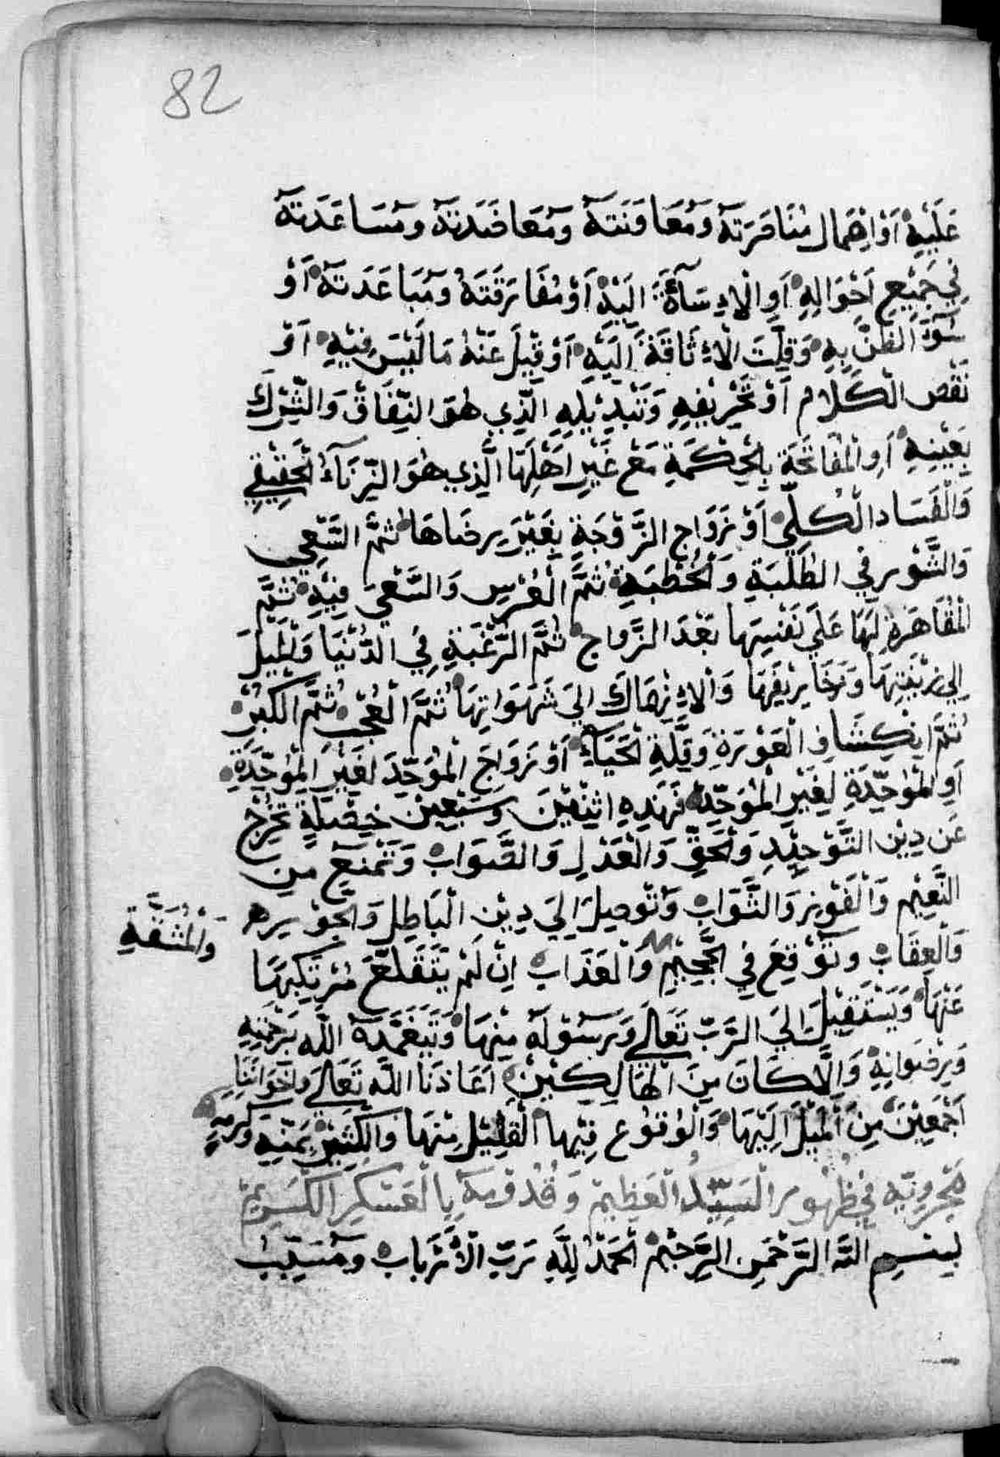 82
عَلَيْهِ اَوْ اِهْمَال مُنَاصَرَتَهُ وَمُعَاوَنَتهُ وَمُعَاضَدَتهُ وَمُسَاعَدَتهُ
فِي جَمِيْعِ اَحْوَالِهِ اَوِ الْاِسَآءَةَ اِلَيْهِ اَوْ مُفَارَقَتَهُ وَمُبَاعَدَتهُ اَوْ
سُوْءَ الظَّنِّ بِهِ وَقِلَّتَ الْاِثَاقَةَ اِلَيْهِ اَوْ قِيْلَ عَنْهُ مَا لَيْسَ فِيْهِ اَوْ
نَقْصِ الْكَلَام اَوْ تَحْرِيْفِهِ وَتَبْدِيْلِهِ الَّذِي هُوَ النِّفَاقْ وَالشِّرْكَ
بِعَيْنِهِ اَوِ الْمُفَاتَحَةِ بِالْحِكْمَةِ مَعْ غَيْرِ اَهْلِهَا الَّذِي هُوَ الزِّنَآءُ الْحَقِيْقِي
وَالْفَسَاد الْكُلِّي اَوْ زَوَاج الزَّوْجَةِ بِغَيْرِ رِضَاهَا ثُمَّ السَّعِي
وَالشَّوْر فِي الطَّلَبَةِ وَالْخُطْبَةِ ثُمَّ الْعُرْسِ وَالسَّعْيَ فِيْهِ ثُمَّ
الْمُقَاهَرَةِ لَهَا عَلَى نَفْسِهَا بَعْدَ الزَّوَاج ثُمَّ الرَّغْبَةِ فِي الدُّنْيَا وَالْمَيْلَ
اِلَى زِيْنَتِهَا وَزَخَارِيْفِهَا وَالْاِنْهِمَاكَ اِلَى شَهَوَاتِهَا ثُمَّ الْعُجْبِ ثُمَّ الْكِبْرْ
ثُمَّ اِنْكِشَافِ الْعَوْرَةِ وَقِلَّةِ الْحَيَآءِ اَوْ زَوَاجَ الْمُوَحِّدَ لِغَيْرِ الْمُوَحِّدَةِ
اَوِ الْمُوَحِّدَةِ لِغَيْرِ الْمُوَحِّدْ فَهَذِهِ اثْنَيْنَ وَسَبْعِيْنَ خِصْلَةٍ تُخْرِجْ
عَن دِيْن التَّوْحِيْدِ وَالْحَقِّ وَالْعَدْلِ وَالصَّوَابْ وَتَمْنَعَ مِن
النَّعِيْم وَالْفَوْزِ وَالثَّوَابْ وَتُوصِلَ اِلَى دِيْن الْبَاطِل وَالْجَوْر
وَالْمَشَقَّةِ
وَالْعِقَابْ وَتُوْقِعَ فِي الْجَحِيْمِ وَالْعَذَابْ اِنْ لَمْ يَتَقَلَّعْ مُرْتَكِبَهَا
عَنْهَا وَيَسْتَقِيْلَ اِلَى الرَّبّ تَعَالَى وَرَسُوْلهُ مِنْهَا وَتَغَمَّدَهُ اللّٰه بِرَحْمَتِهِ
وَرِضْوَانِهِ وَاِلَّا كَانَ مِنَ الْهَالِكِيْنْ اَعَاذَنَا اللّٰه تَعَالَى وَاِخْوَانَنَا
اَجْمَعِيْنَ مِنَ الْمَيْلَ اِلَيْهَا وَالْوُقُوْع فِيْهَا الْقَلِيْل مِنْهَا وَالْكَثِيْرْ بِمَنِّهِ وَكَرَمِهِ
فِي ظُهُور السَّيِّدُ الْعَظِيمْ وَقُدُوْمهُ بِالْعَسْكَرِ الْكَرِيمْ
بِسْمِ اللّٰه الرَّحْمَن الرَّحِيْمْ الْحَمْدُ لِلّٰهِ رَبِّ الْاَرْبَابْ وَمُسَبِّبْ